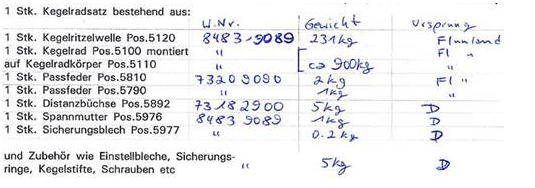 1 Stk. Kegelradsatz bestehend aus: W.Nr. Gewicht Ursprung
1 Stk. Kegelritzelwelle Pos.5120 8483 9089 231kg Finnland
1 Stk. Kegelrad Pos.5100 montiert " Fl "
auf Kegelradkörper Pos.5110 " ca 900kg "
1 Stk. Passfeder Pos.5810 73209090 2kg Fl "
1 Stk. Passfeder Pos.5790 " 1kg "
1 Stk. Distanzbüchse Pos.5892 73182900 5kg D
1 Stk. Spannmutter Pos.5976 8483 9089 1kg D
1 Stk. Sicherungsblech Pos.5977 " 0.2kg D
und Zubehör wie Einstellbleche, Sicherungs-
ringe, Kegelstifte, Schrauben etc " 5kg D